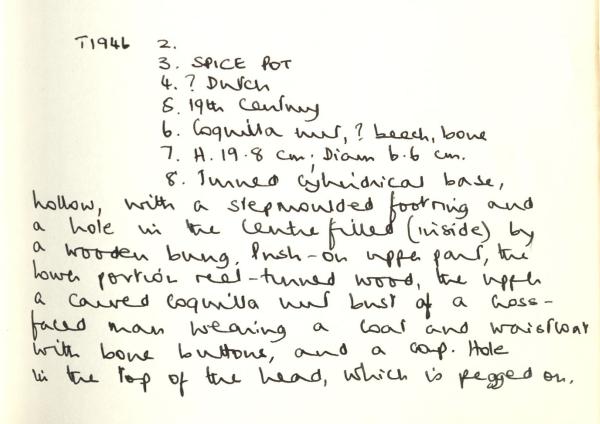 T1946 2.
3. SPICE POT
4. ? Dutch
5. 19th Century
6. Coquilla nut, ? beech, bone
7. H. 19.8 cm; Diam 6.6 cm.
8. Turned cylindrical base,
hollow, with a stepmoulded footring and
a hole in the centre filled (inside) by
a wooden bung. Push-on upper part, the
lower portion reel-turned wood, the upper
a carved coquilla nut bust of a cross-
faced man wearing a coat and waistcoat
with bone buttons, and a cap. Hole
in the top of the head, which is pegged on.